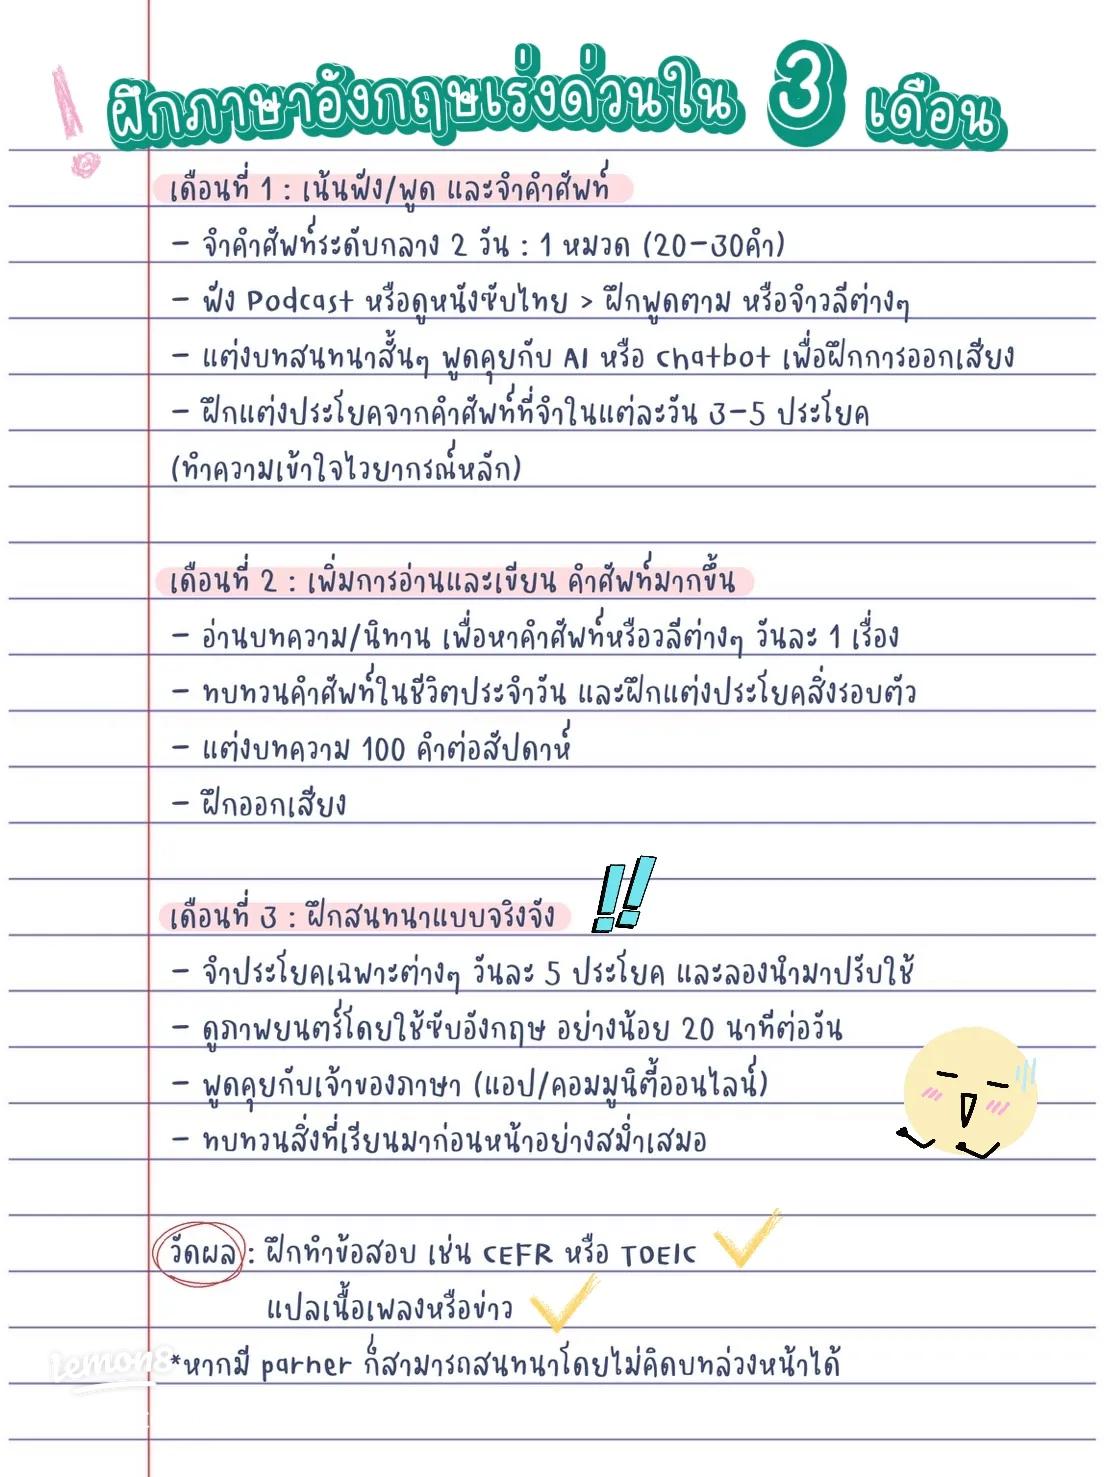 ฝึกภาษาอังกฤษเร่งด่วนใน 3 เดือน
เดือนที่ 1 : เน้นฟัง/พูด และจำคำศัพท์
- จำคำศัพท์ระดับกลาง 2 วัน : 1 หมวด (20-30คำ)
- ฟัง Podcast หรือดูหนังซับไทย > ฝึกพูดตาม หรือจำวลีต่างๆ
- แต่งบทสนทนาสั้นๆ พูดคุยกับ AI หรือ chatbot เพื่อฝึกการออกเสียง
- ฝึกแต่งประโยคจากคำศัพท์ที่จำในแต่ละวัน 3-5 ประโยค
(ทำความเข้าใจไวยากรณ์หลัก)
เดือนที่ 2 : เพิ่มการอ่านและเขียน คำศัพท์มากขึ้น
- อ่านบทความ/นิทาน เพื่อหาคำศัพท์หรือวลีต่างๆ วันละ 1 เรื่อง
- ทบทวนคำศัพท์ในชีวิตประจำวัน และฝึกแต่งประโยคสิ่งรอบตัว
- แต่งบทความ 100 คำต่อสัปดาห์
- ฝึกออกเสียง
เดือนที่ 3 : ฝึกสนทนาแบบจริงจัง !!
- จำประโยคเฉพาะต่างๆ วันละ 5 ประโยค และลองนำมาปรับใช้
- ดูภาพยนตร์โดยใช้ซับอังกฤษ อย่างน้อย 20 นาทีต่อวัน
- พูดคุยกับเจ้าของภาษา (แอป/คอมมูนิตี้ออนไลน์)
- ทบทวนสิ่งที่เรียนมาก่อนหน้าอย่างสม่ำเสมอ
วัดผล : ฝึกทำข้อสอบ เช่น CEFR หรือ TOEIC
แปลเนื้อเพลงหรือข่าว
*หากมี parner ก็สามารถสนทนาโดยไม่คิดบทล่วงหน้าได้
lemon8